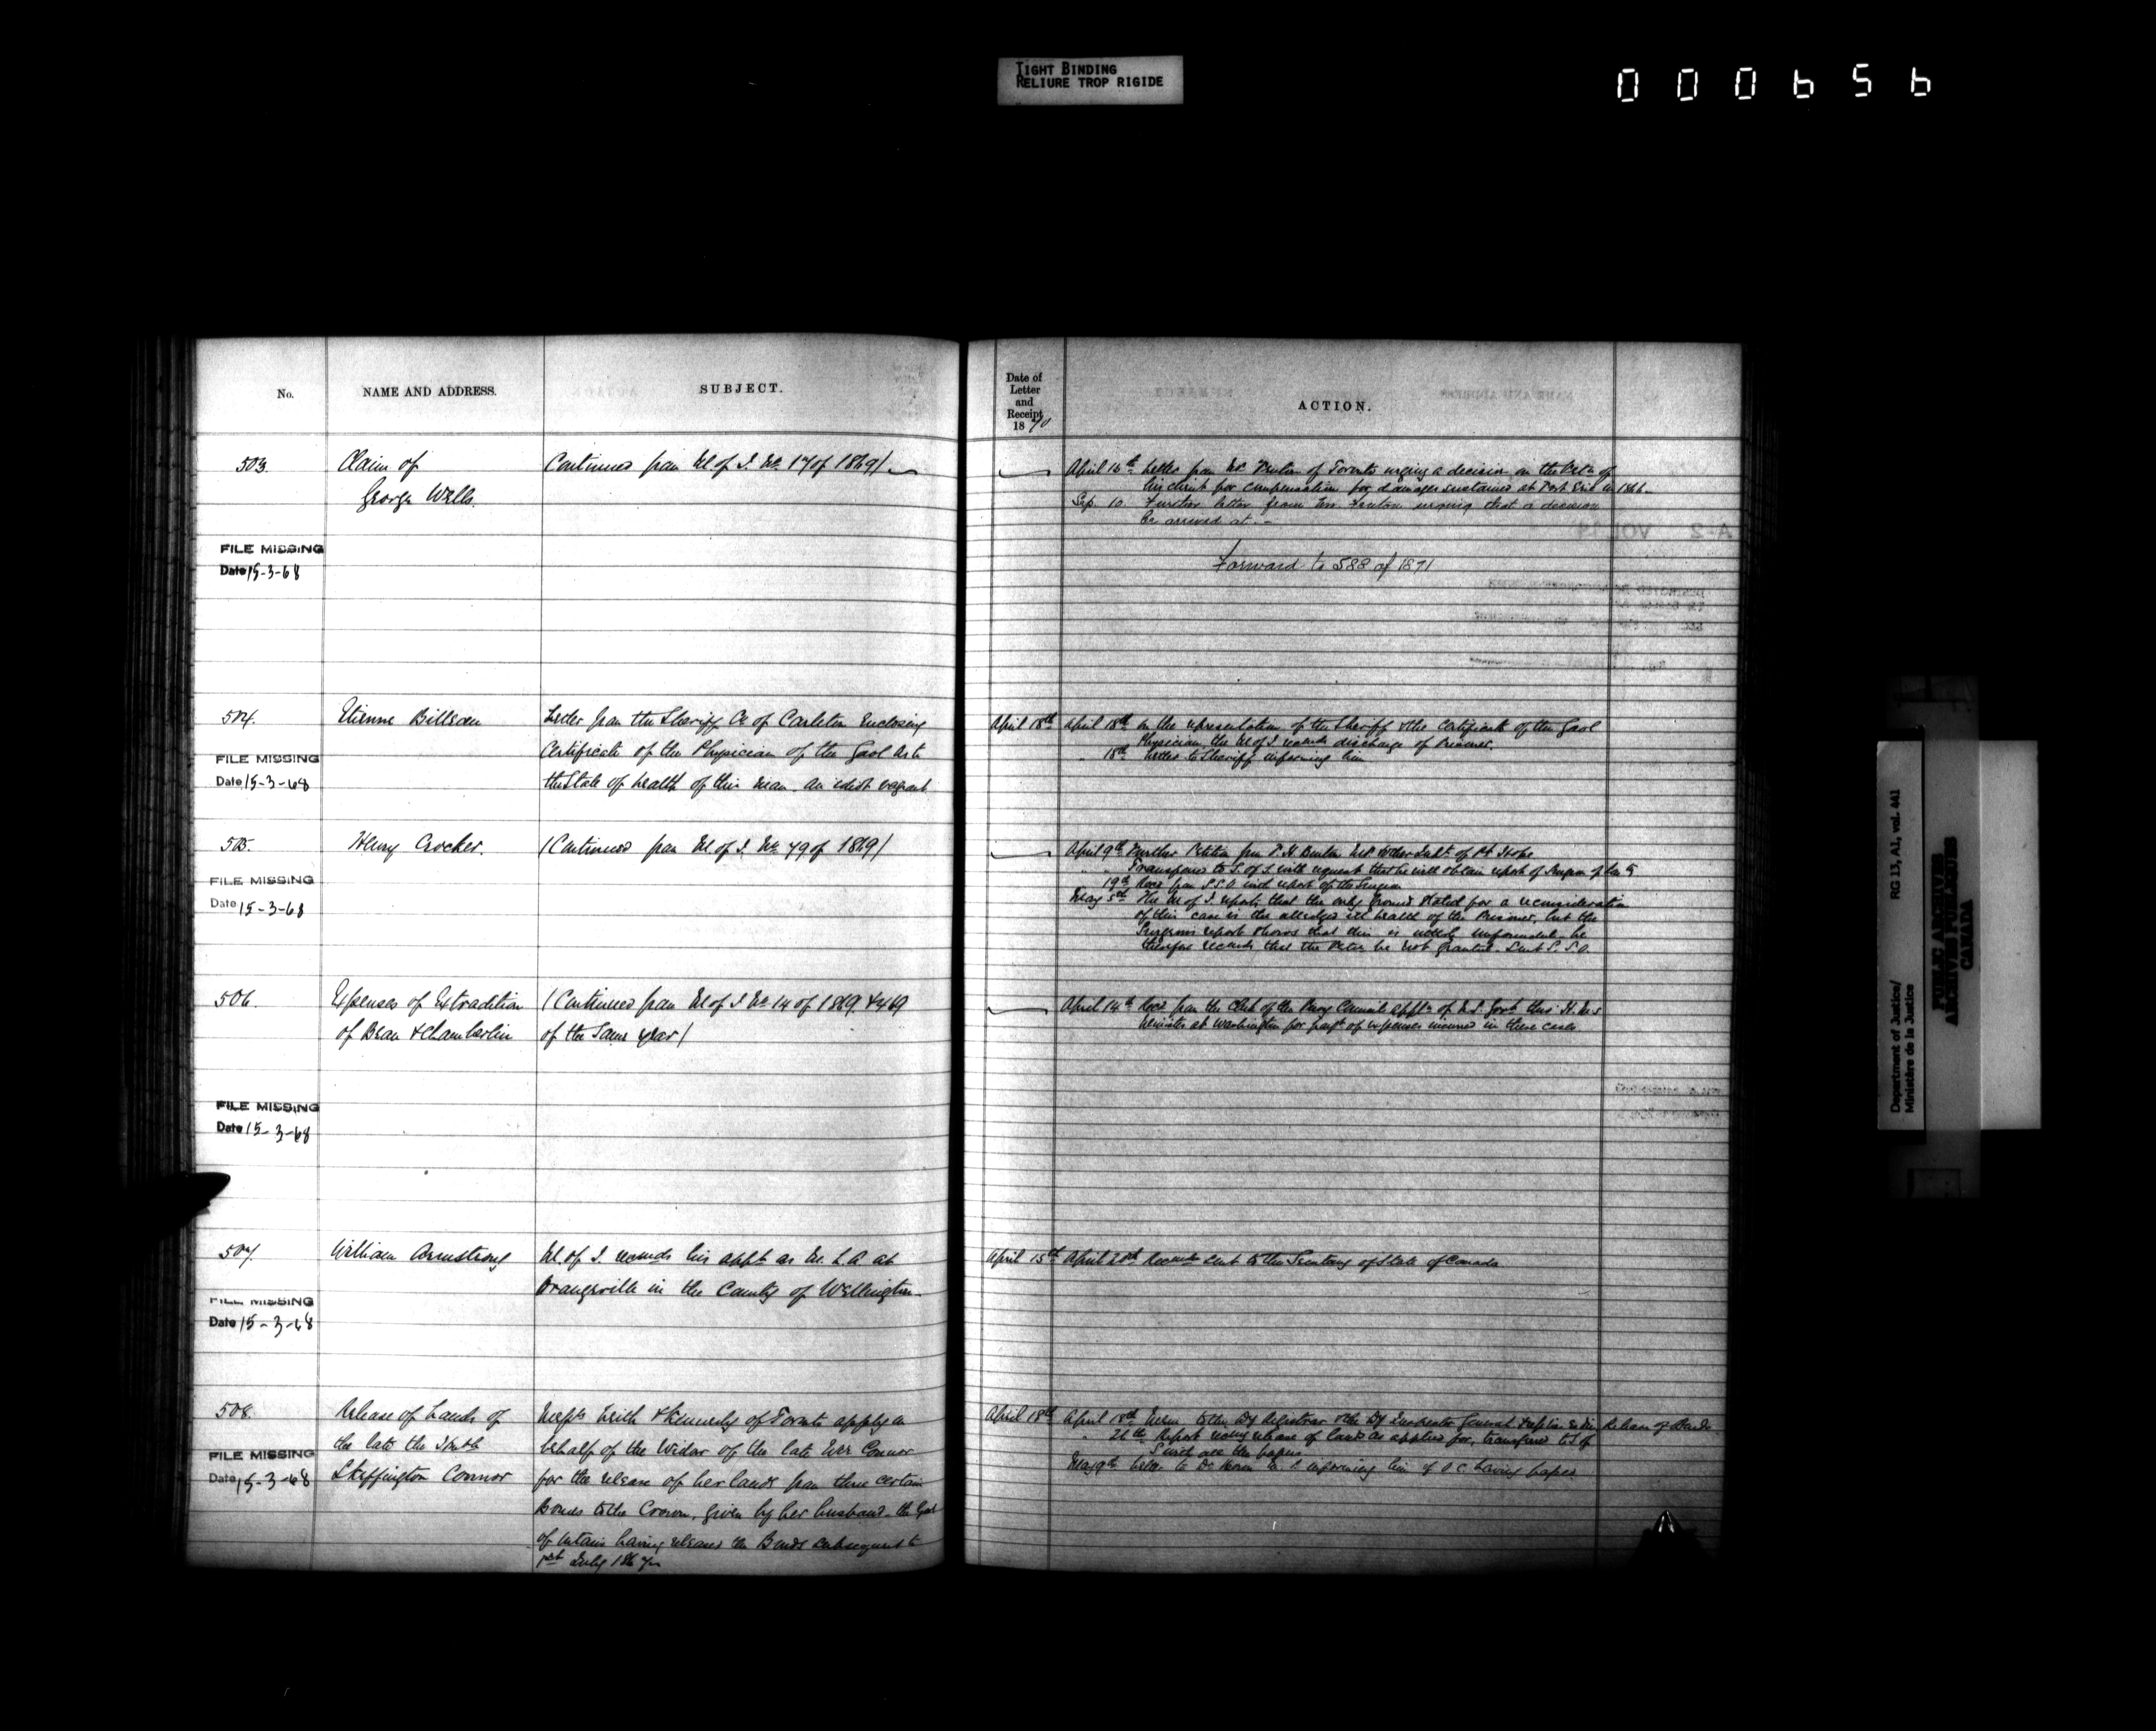 TIGHT BINDING
RELIURE TROP RIGIDE
000656
No.
NAME AND ADDRESS.
SUBJECT.
503.
Claim of
George Wells.
Continued from M. of J. No. 17 of 1869/
FILE MISSING
Date 15-3-68
504.
Etienne
Letter from the Sheriff Co of Carleton Enclosing
Certificate of the Physician of the Gaol as to
the State of health of this man. An idiot vagrant
FILE MISSING
Date 15-3-68
505.
Henry Crocker.
(Continued from M. of J. No. 79 of 1869/
FILE MISSING
Date 15-3-68
506.
Expenses of Extradition
of Bean & Chamberlin
(Continued from M of J No 14 of 1869 & 469
of the Same year)
FILE MISSING
Date 15-3-68
507.
William Armstrong
M. of J. recomds his appt as at
Orangeville in the County of Wellington
FILE MISSING
Date 15-3-68
508.
Release of Lands of
the late the
Skeffington Connor
& Kennedy of Toronto apply on
behalf of the Widow of the late Connor
for the release of her lands from three certain
Bonds to the Crown, given by her husband - the
of Ontario having released the Bonds subsequent to
1st July 1867
FILE MISSING
Date 15-3-68
Date of
Letter
and
Receipt
1870
ACTION.
April 16th Letter from of Toronto urging a decision on the Petn of
his client for compensation for damages sustained at Fort Erie in 1866.
Sep. 10. Further letter from urging that a decision
be arrived at. -
Forward to 588 of 1871
April 18th
April 18th On the representation of the Sheriff & the Certificate of the Gaol
Physician, the M of J recomds discharge of Prisoner.
" 18th Letter to Sheriff informing him
April 9th Further Petition from of Pt Hope
" Transferred to S. of S. with request that he will obtain report of Surgeon of the
19th Recd from S.S.O with report of the Surgeon
May 5th The M of J. reports that the only ground stated for a reconsideration
of this case is the alledged ill health of the Prisoner, but the
Surgeons report shows that this is unfounded - he
therefore recomds that the Petn be not granted. Sent S.S.O.
April 14th Recd from the Clerk of the Privy Council of U.S. Govt thro' H.M's
Minister at Washington for paymt of expenses incurred in these cases
April 15th
April Recomdn sent to the Secretary of State of Canada
April 18th
April 18th to the Dy Registrar & the Dy Inspector General Release of Bonds
" Report recomg release of lands as applied for, transferred to S of
S with all the papers
May 9th Letter to informing him of O.C. having
Department of Justice/
Ministère de la Justice
RG 13, A1, vol. 441
PUBLIC ARCHIVES
ARCHIVES PUBLIQUES
CANADA